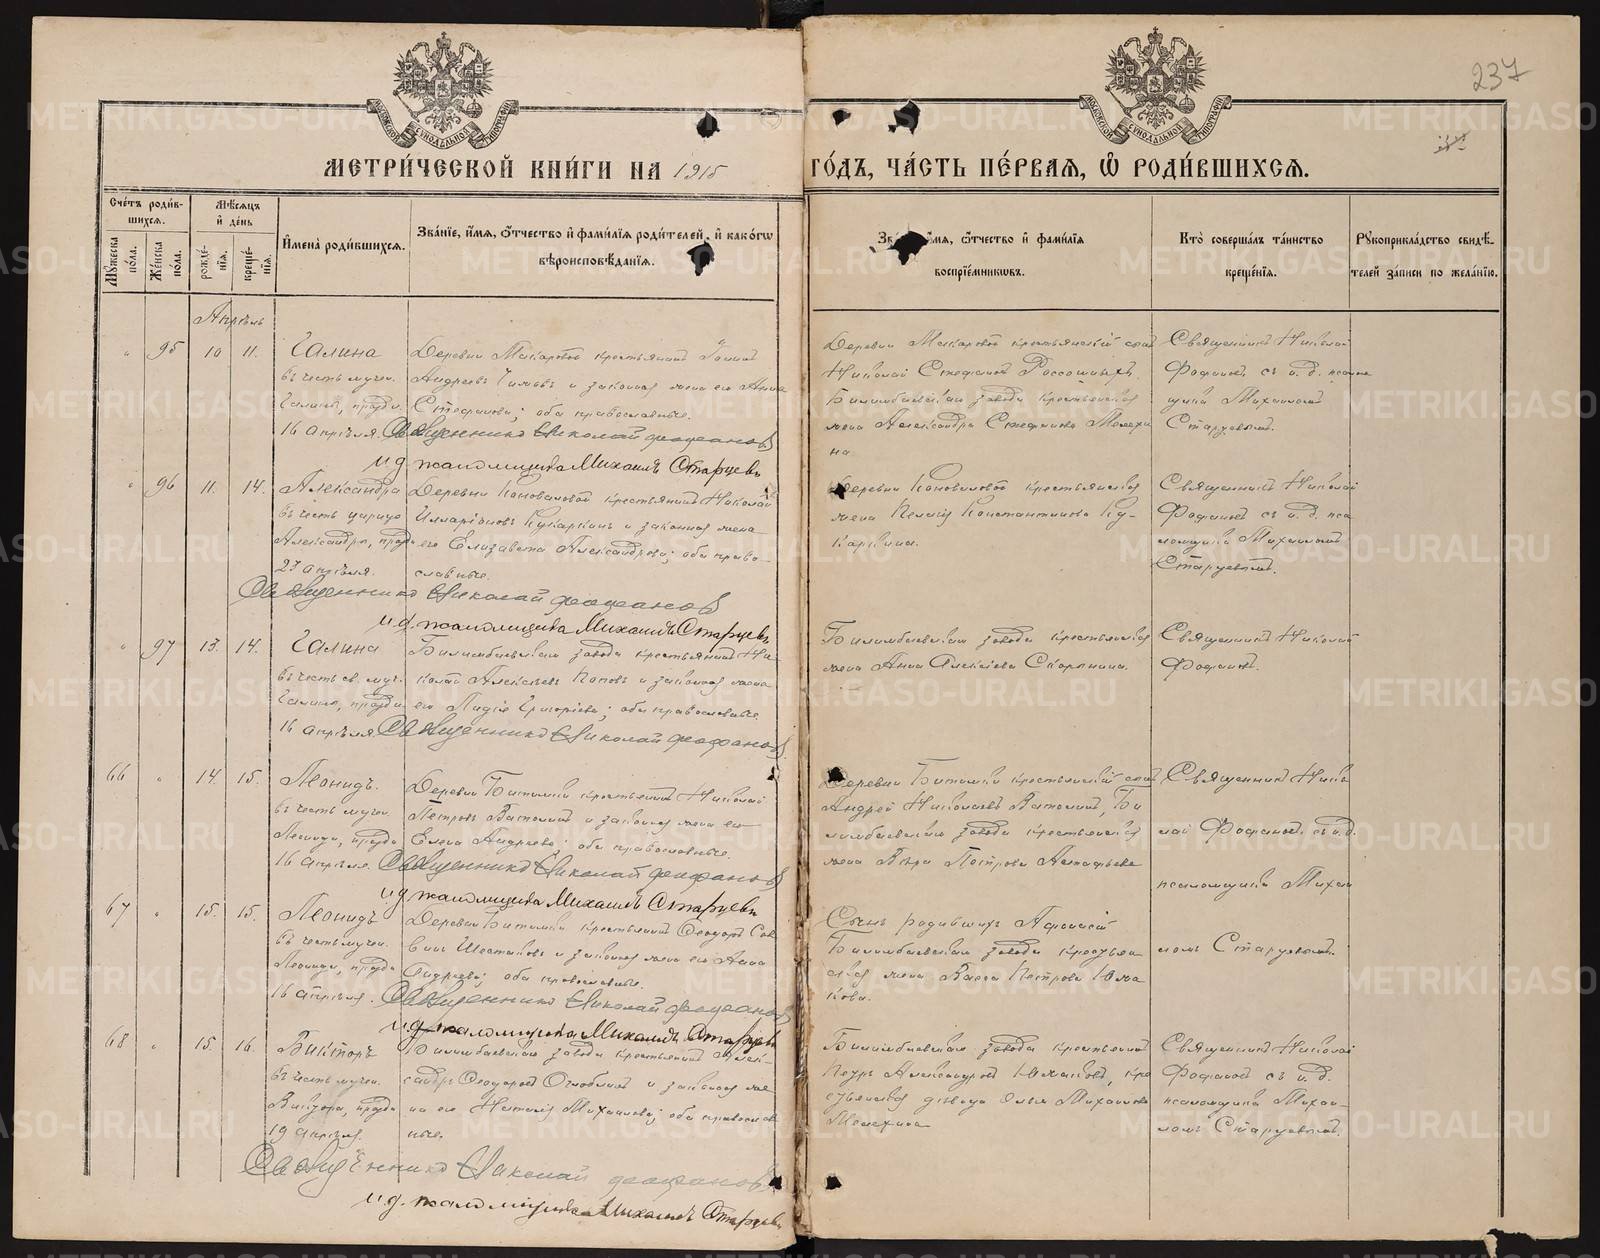 237
МЕТРИ́ЧЕСКОЙ КНИ́ГИ НА 1915 ГО́ДЪ, ЧА́СТЬ ПЕ́РВАЯ, Ѿ РОДИ́ВШИХСЯ.
Сче́тъ роди́вшихся.
Мужеска пола.
Же́нска пола.
Мѣ́сяцъ и де́нь
рожде́нія.
креще́нія.
Имена̀ роди́вшихся.
Зва́ніе, и́мя, о́тчество и фами́лія роди́телей, и како́гѡ вѣроисповѣ́данія.
и́мя, о́тчество и фами́лія
воспріе́мникѡвъ.
Кто̀ соверша́лъ та́инство
креще́нія.
Рукоприкла́дство свидѣ́-
телей за́писи по жела́нію.
Апрѣль
95 10 11. Галина
въ честь мучен.
Галины, празд.
16 апрѣля.
Деревни Макаровой крестьянинъ
Андреевъ и законная жена его Анна
Стефановна; оба православные.
Священникъ Николай Феофановъ
и.д. псаломщика Михаилъ Старцевъ
Деревни Макаровой крестьянскій сынъ
Николай Стефановъ Россошныхъ,
Билимбаевскаго завода крестьянская
жена Александра Стефанова Мелехи
на.
Священникъ Николай
Феофановъ съ и.д. псалом
щика Михаиломъ
Старцевымъ.
96 11. 14. Александра
въ честь царицы
Александры, празд.
23 апрѣля.
Деревни Коноваловой крестьянинъ Николай
Илларіоновъ Кукаркинъ и законная жена
его Елизавета Александрова; оба право-
славные.
Священникъ Николай Феофановъ
и.д. псаломщика Михаилъ Старцевъ
Деревни Коноваловой крестьянская
жена Пелагія Константинова Ку-
каркина.
Священникъ Николай
Феофановъ съ и.д. пса
ломщика Михаиломъ
Старцевымъ.
97 13. 14. Галина
въ честь св. муч.
Галины, празд.
16 апрѣля.
Билимбаевскаго завода крестьянинъ Ни-
колай Алексѣевъ Поповъ и законная жена
его Лидія Григорьева; оба православные.
Священникъ Николай Феофановъ
Билимбаевскаго завода крестьянская
жена Анна Алексіева Скорынина.
Священникъ Николай
Феофановъ.
66 14. 15. Леонидъ.
въ честь мучен.
Леонида, празд.
16 апрѣля.
Деревни Битимки крестьянинъ Николай
Петровъ Ватолинъ и законная жена его
Елена Андреева; оба православные.
Священникъ Николай Феофановъ
и.д. псаломщика Михаилъ Старцевъ
Деревни Битимки крестьянскій сынъ
Андрей Николаевъ Ватолинъ, Би
лимбаевскаго завода крестьянская
жена Вѣра Петрова Астафьева
Священникъ Нико
лай Феофановъ съ и.д.
псаломщика Михаи
ломъ Старцевымъ.
67 15. 15. Леонидъ
въ честь мучен.
Леонида, празд.
16 апрѣля.
Деревни Битимки крестьянинъ Феодоръ Сав
винъ Шестаковъ и законная жена его Анна
Андреева; оба православные.
Священникъ Николай Феофановъ
и.д. псаломщика Михаилъ Старцевъ
Сынъ родившихъ Афанасій
Билимбаевскаго завода крестьян
ская жена Васса Петрова Юма
кова.
68 15. 16. Викторъ
въ честь мучен.
Виктора, празд.
19 апрѣля.
Билимбаевскаго завода крестьянинъ Алек-
сандръ Феодоровъ Оглоблинъ и законная же
на его Наталія Михаилова; оба православ
ные.
Священникъ Николай Феофановъ
и.д. псаломщика Михаилъ Старцевъ
Билимбаевскаго завода крестьянинъ
Петръ Александровъ Юмаковъ, кре
стьянская дѣвица Ольга Михаилова
Мелехина
Священникъ Николай
Феофановъ съ и.д.
псаломщика Михаи-
ломъ Старцевымъ.
METRIKI.GASO-URAL.RU